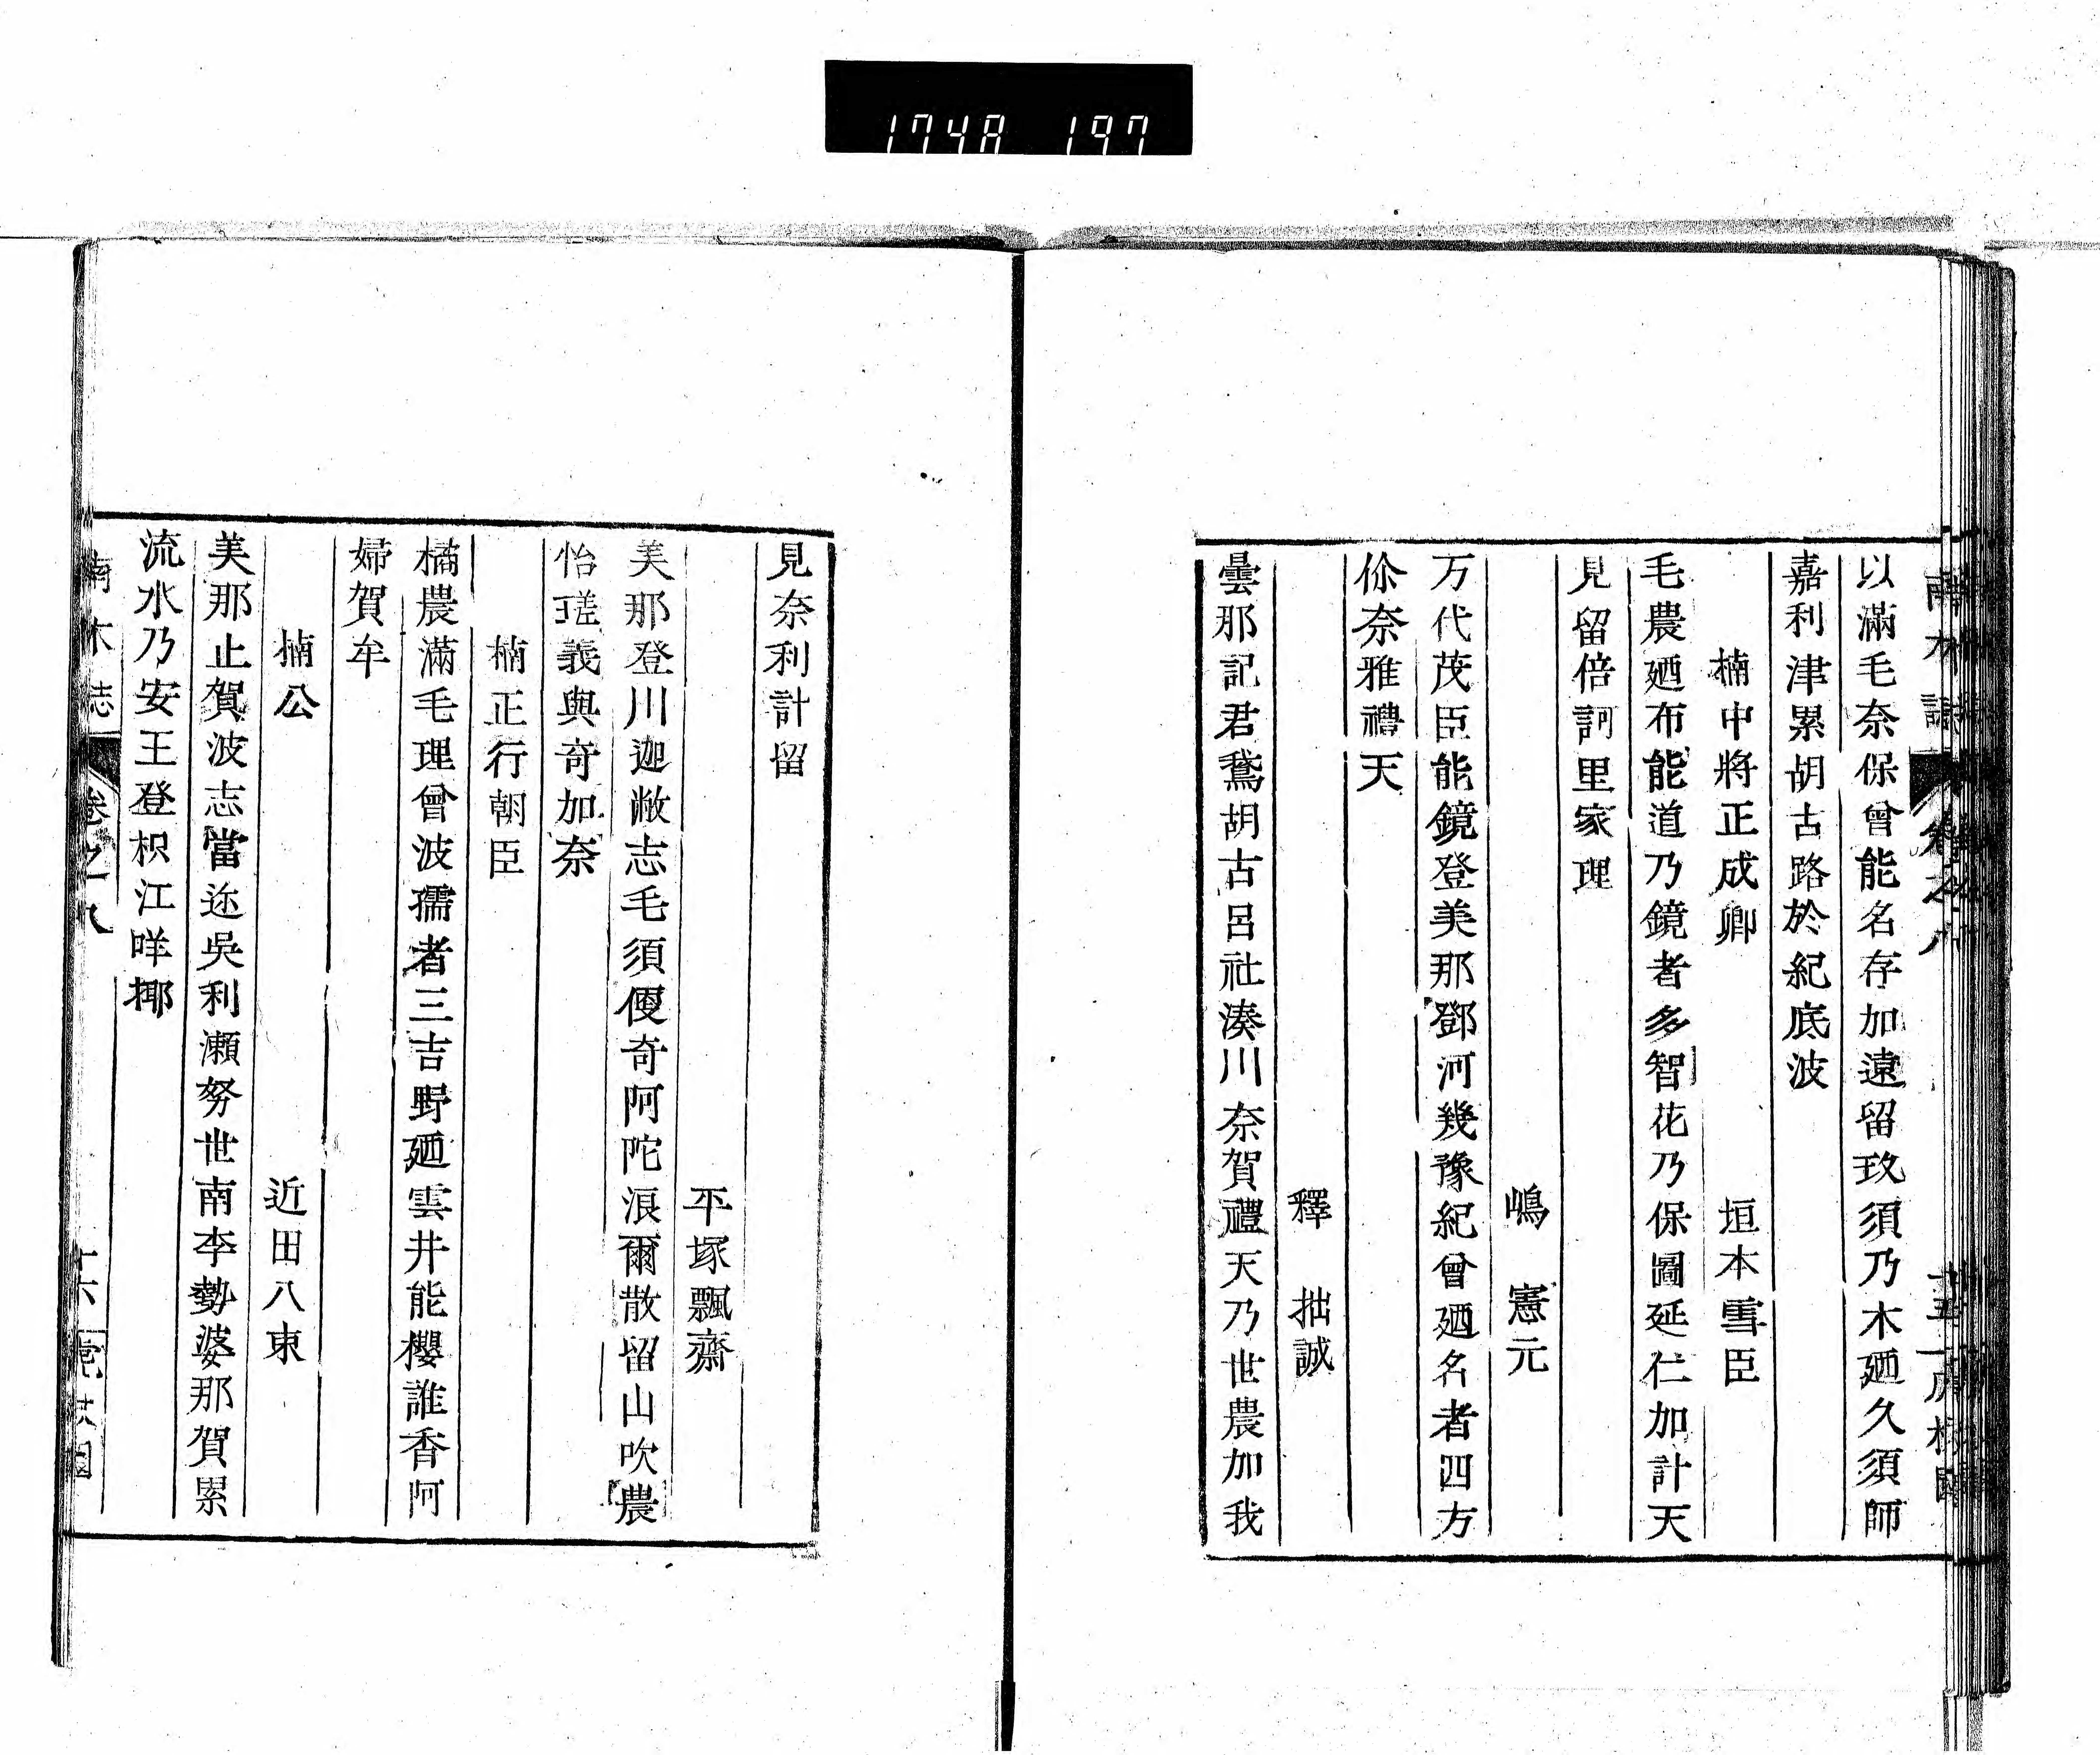 1748 197
以滿毛奈保曾能名存加遠留玖須乃木廼久須師
嘉利津累胡古路於紀底波
楠中將正成卿 垣本雪臣
毛農廼布能道乃鏡者多智花乃保圖延仁加計天
見留倍訶里家理
嶋 憲元
万代茂臣能鏡登美那鄧河幾豫紀曾廼名者四方
你奈雅禮天
釋 拙誠
曇那記君鵞胡古呂社湊川奈賀禮天乃世農加我
見奈利計留
平塚飄齋
美那登川迦敝志毛須偃奇阿陀浪爾散留山吹農
怡瑳義與奇加奈
楠正行朝臣
橘農滿毛理曾波孺者三吉野廼雲井能櫻誰香阿
婦賀牟
楠公 近田八束
美那止賀波志當迩吳利瀨努世南李勢婆那賀累
流水乃安王登枳江咩揶
南木誌 卷之八 十六